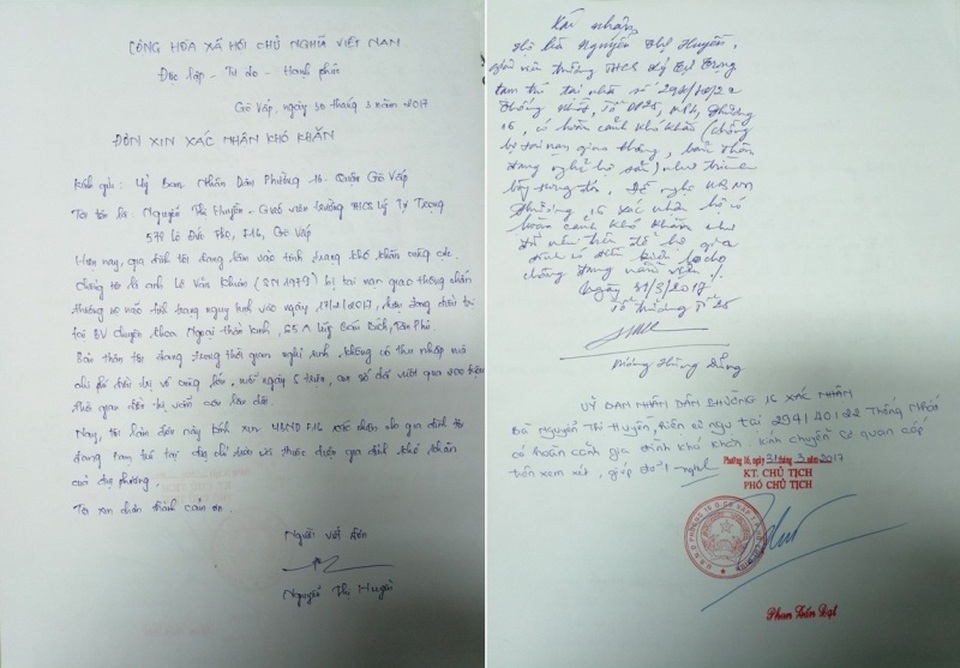 CỘNG HÒA XÃ HỘI CHỦ NGHĨA VIỆT NAM
Độc lập - Tự do - Hạnh phúc
Gò Vấp, ngày 30 tháng 3 năm 2017
ĐƠN XIN XÁC NHẬN KHÓ KHĂN
Kính gửi: Uỷ Ban Nhân Dân Phường 16 - Quận Gò Vấp
Tôi tên là: Nguyễn Thị Huyền - Giáo viên trường THCS Lý Tự Trọng
578 Lê Đức Thọ, F.16, Gò Vấp
Hiện nay, gia đình tôi đang lâm vào tình trạng khó khăn
Chồng tôi là anh Lê Văn (SN 1979) bị tai nạn giao thông chấn
thương sọ não tình trạng nguy kịch vào ngày 17/2/2017, hiện đang điều trị
tại BV chuyên khoa Ngoại thần kinh, 65A Lũy Bán Bích, Tân Phú.
Bản thân tôi đang trong thời gian nghỉ sinh, không có thu nhập mà
chi phí điều trị vô cùng lớn, mỗi ngày 5 triệu, con số đã vượt qua 200 triệu
thời gian điều trị vẫn còn lâu dài.
Nay, tôi làm đơn này kính xin UBND F.16 xác nhận cho gia đình tôi
đang tạm trú tại địa chỉ trên và thuộc diện gia đình khó khăn
của địa phương.
Tôi xin chân thành cảm ơn.
Người viết đơn
Nguyễn Thị Huyền
Xác nhận
Hộ bà Nguyễn Thị Huyền,
giáo viên trường THCS Lý Tự Trọng
tạm trú tại nhà số 294/40/22
Thống Nhất, Tổ DP25, KP4, Phường
16, có hoàn cảnh khó khăn (chồng
bị tai nạn giao thông, bản thân
đang nghỉ hộ sản) như trình
bày trong đơn. Đề nghị UBND
Phường 16 xác nhận hộ có
hoàn cảnh khó khăn như
trên để hộ gia
đình có điều kiện lo cho
chồng đang nằm viện./.
Ngày 31/3/2017
Tổ trưởng Tổ 25
Hùng Dũng
UỶ BAN NHÂN DÂN PHƯỜNG 16 XÁC NHẬN
Bà Nguyễn Thị Huyền, hiện cư ngụ tại 294/40/22 Thống Nhất
có hoàn cảnh gia đình khó khăn. Kính chuyển cơ quan cấp
trên xem xét, giúp đỡ./.
Phường 16, ngày 31 tháng 3 năm 2017
KT. CHỦ TỊCH
PHÓ CHỦ TỊCH
Phan Tấn Đạt